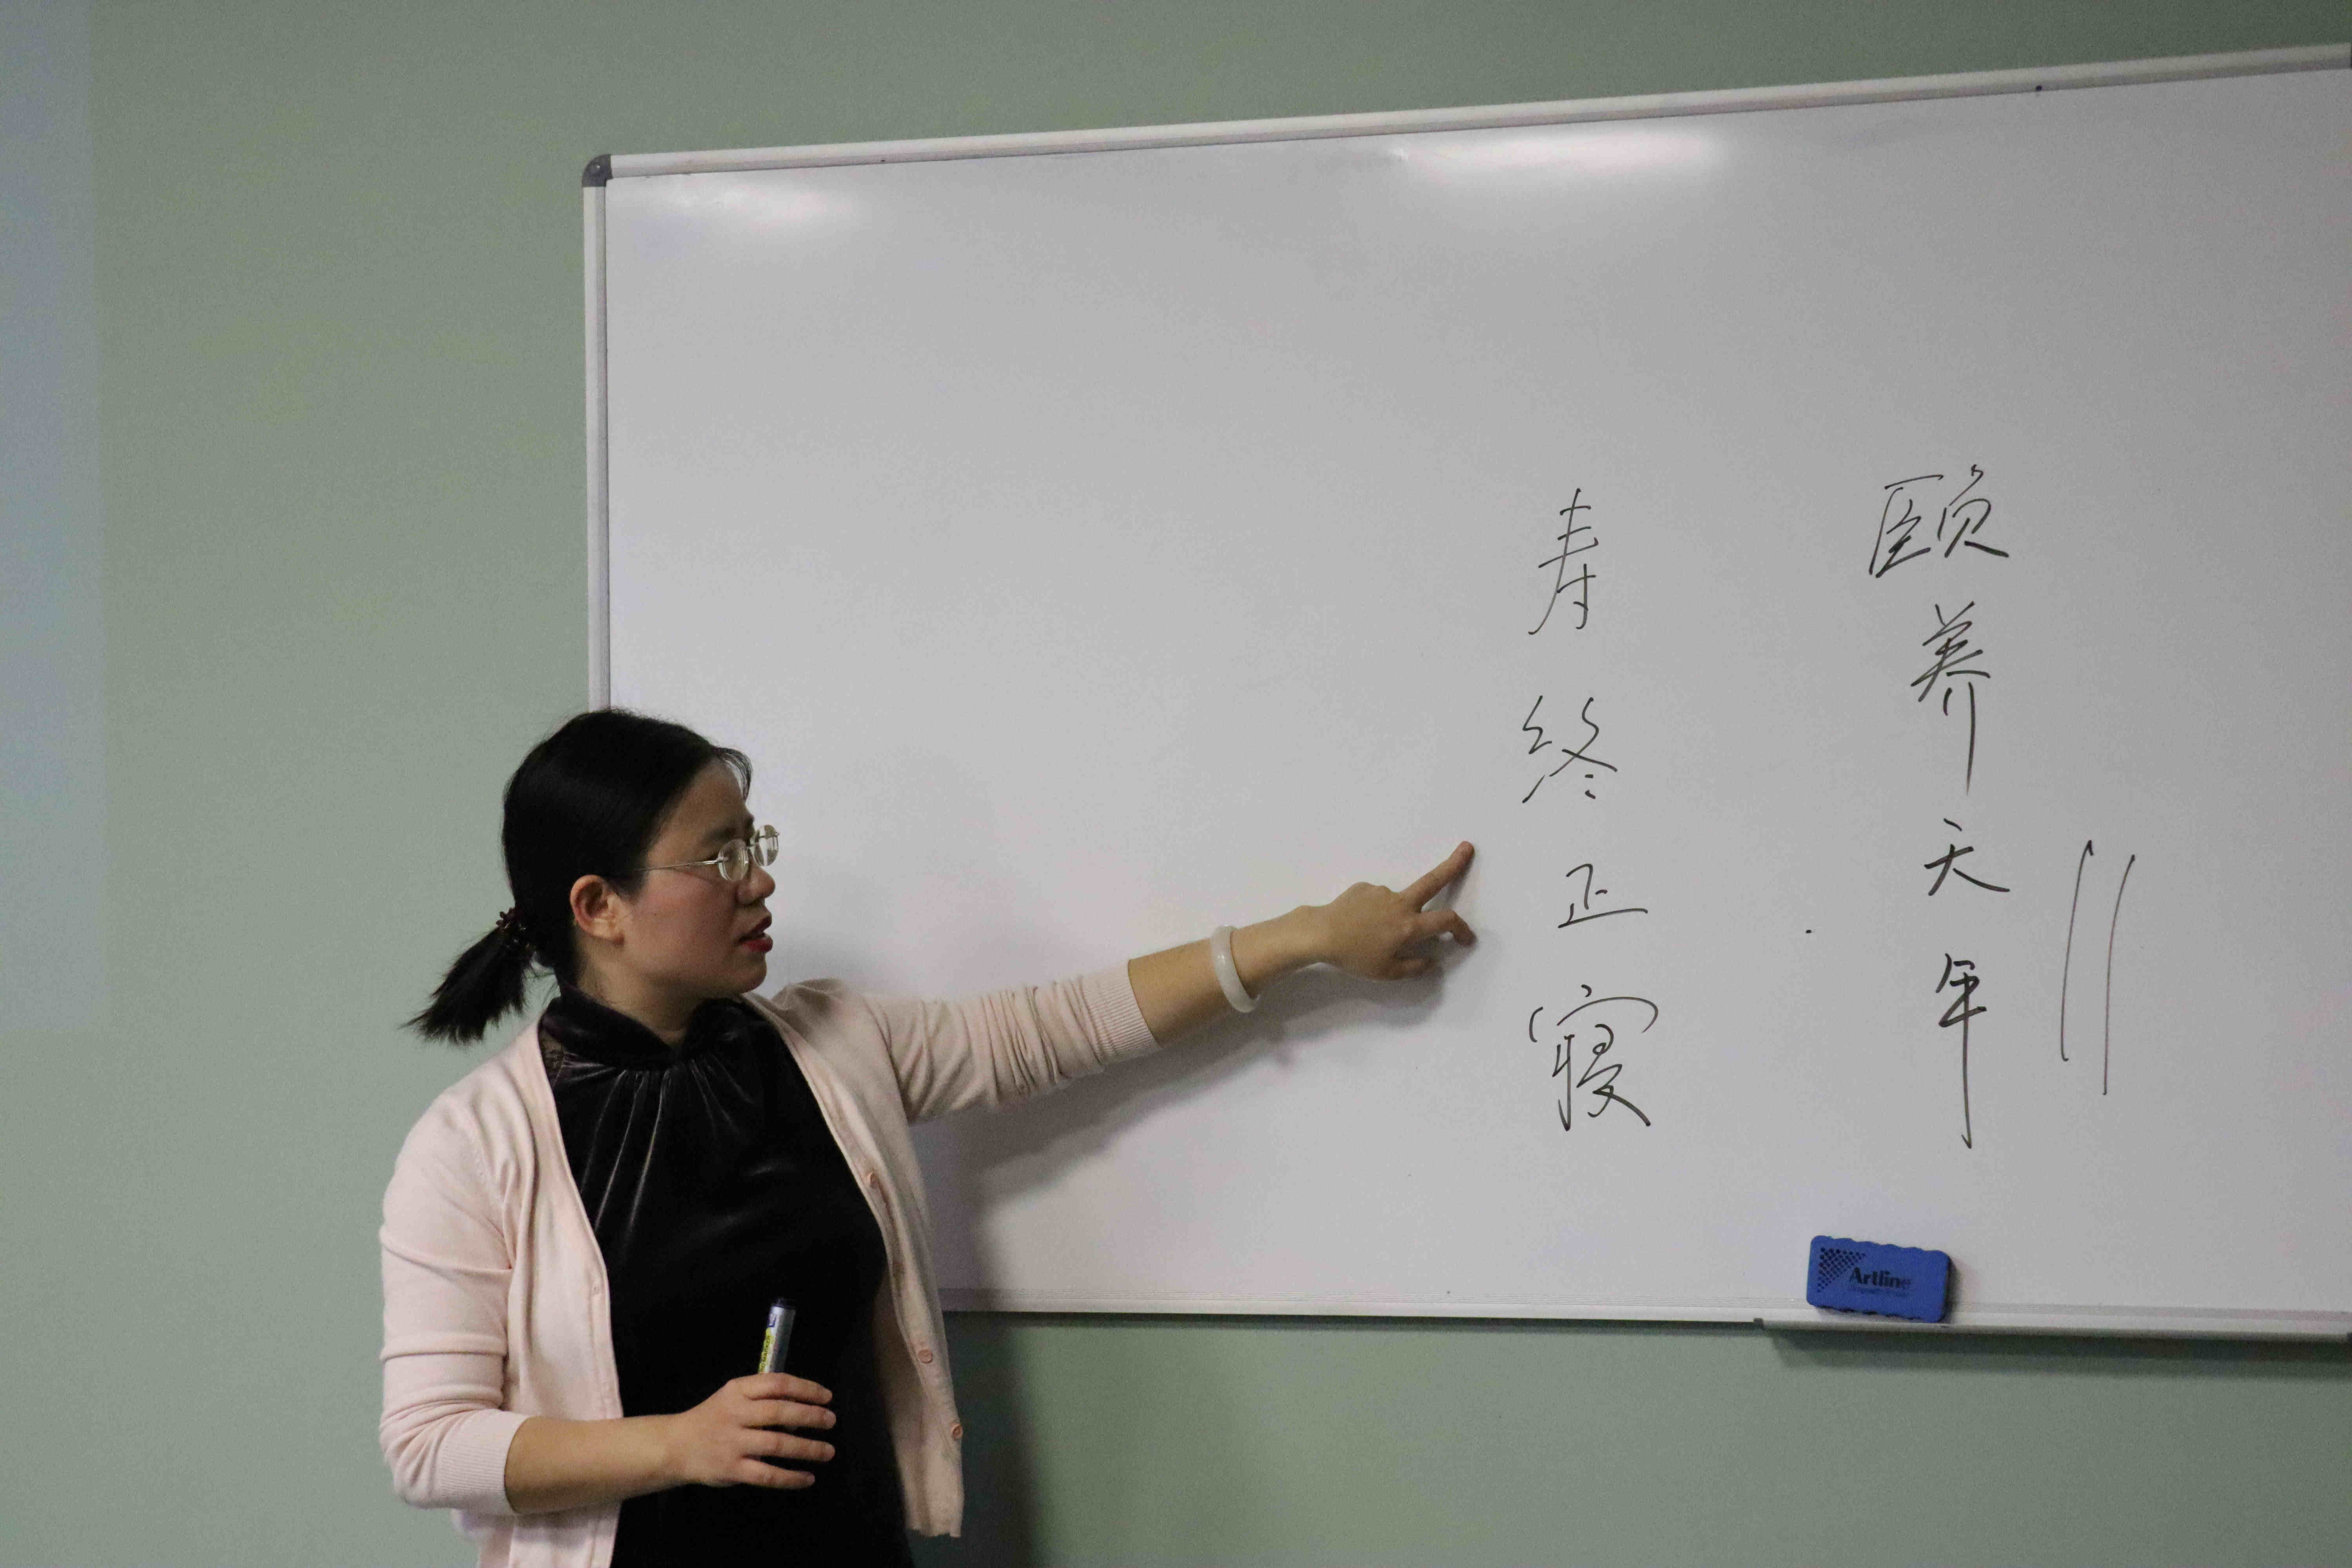 颐养天年
寿终正寝
Artline